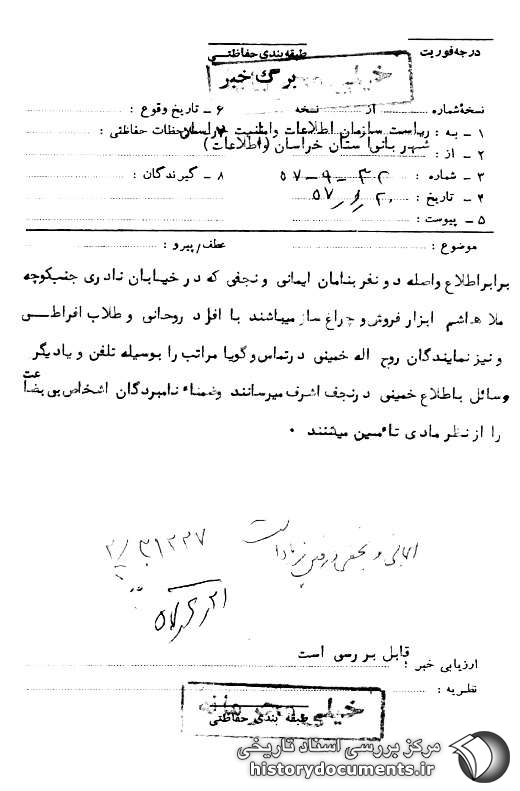 درجه فوریت
طبقه بندی حفاظتی
خیلی محرمانه
برگ خبر
نسخهٔ شماره از نسخه
۶ ـ تاریخ وقوع :
۱ ـ به : ریاست سازمان اطلاعات وامنیت خراسان
۷ ـ ملاحظات حفاظتی :
۲ ـ از : شهربانی استان خراسان (اطلاعات)
۳ ـ شماره : ۳۲ - ۹ - ۵۷
۸ ـ گیرندگان :
۴ ـ تاریخ :
۵ ـ پیوست :
موضوع :
عطف/پیرو :
برابراطلاع واصله دونفربنامان ایمانی ونجفی که درخیابان نادری جنبکوچه
ملا هاشم ابزار فروش و چراغ ساز میباشند با افراد روحانی و طلاب افراطی
و نیز نمایندگان روح اله خمینی درتماس وگویا مراتب را بوسیله تلفن و یادیگر
وسائل باطلاع خمینی درنجف اشرف میرسانند وضمنا" نامبردگان اشخاص بی بضاعت
را ازنظر مادی تامین میکنند .
قابل بررسی است
ارزیابی خبر :
نظریه :
خیلی محرمانه
طبقه بندی حفاظتی
مرکز بررسی اسناد تاریخی
historydocuments.ir